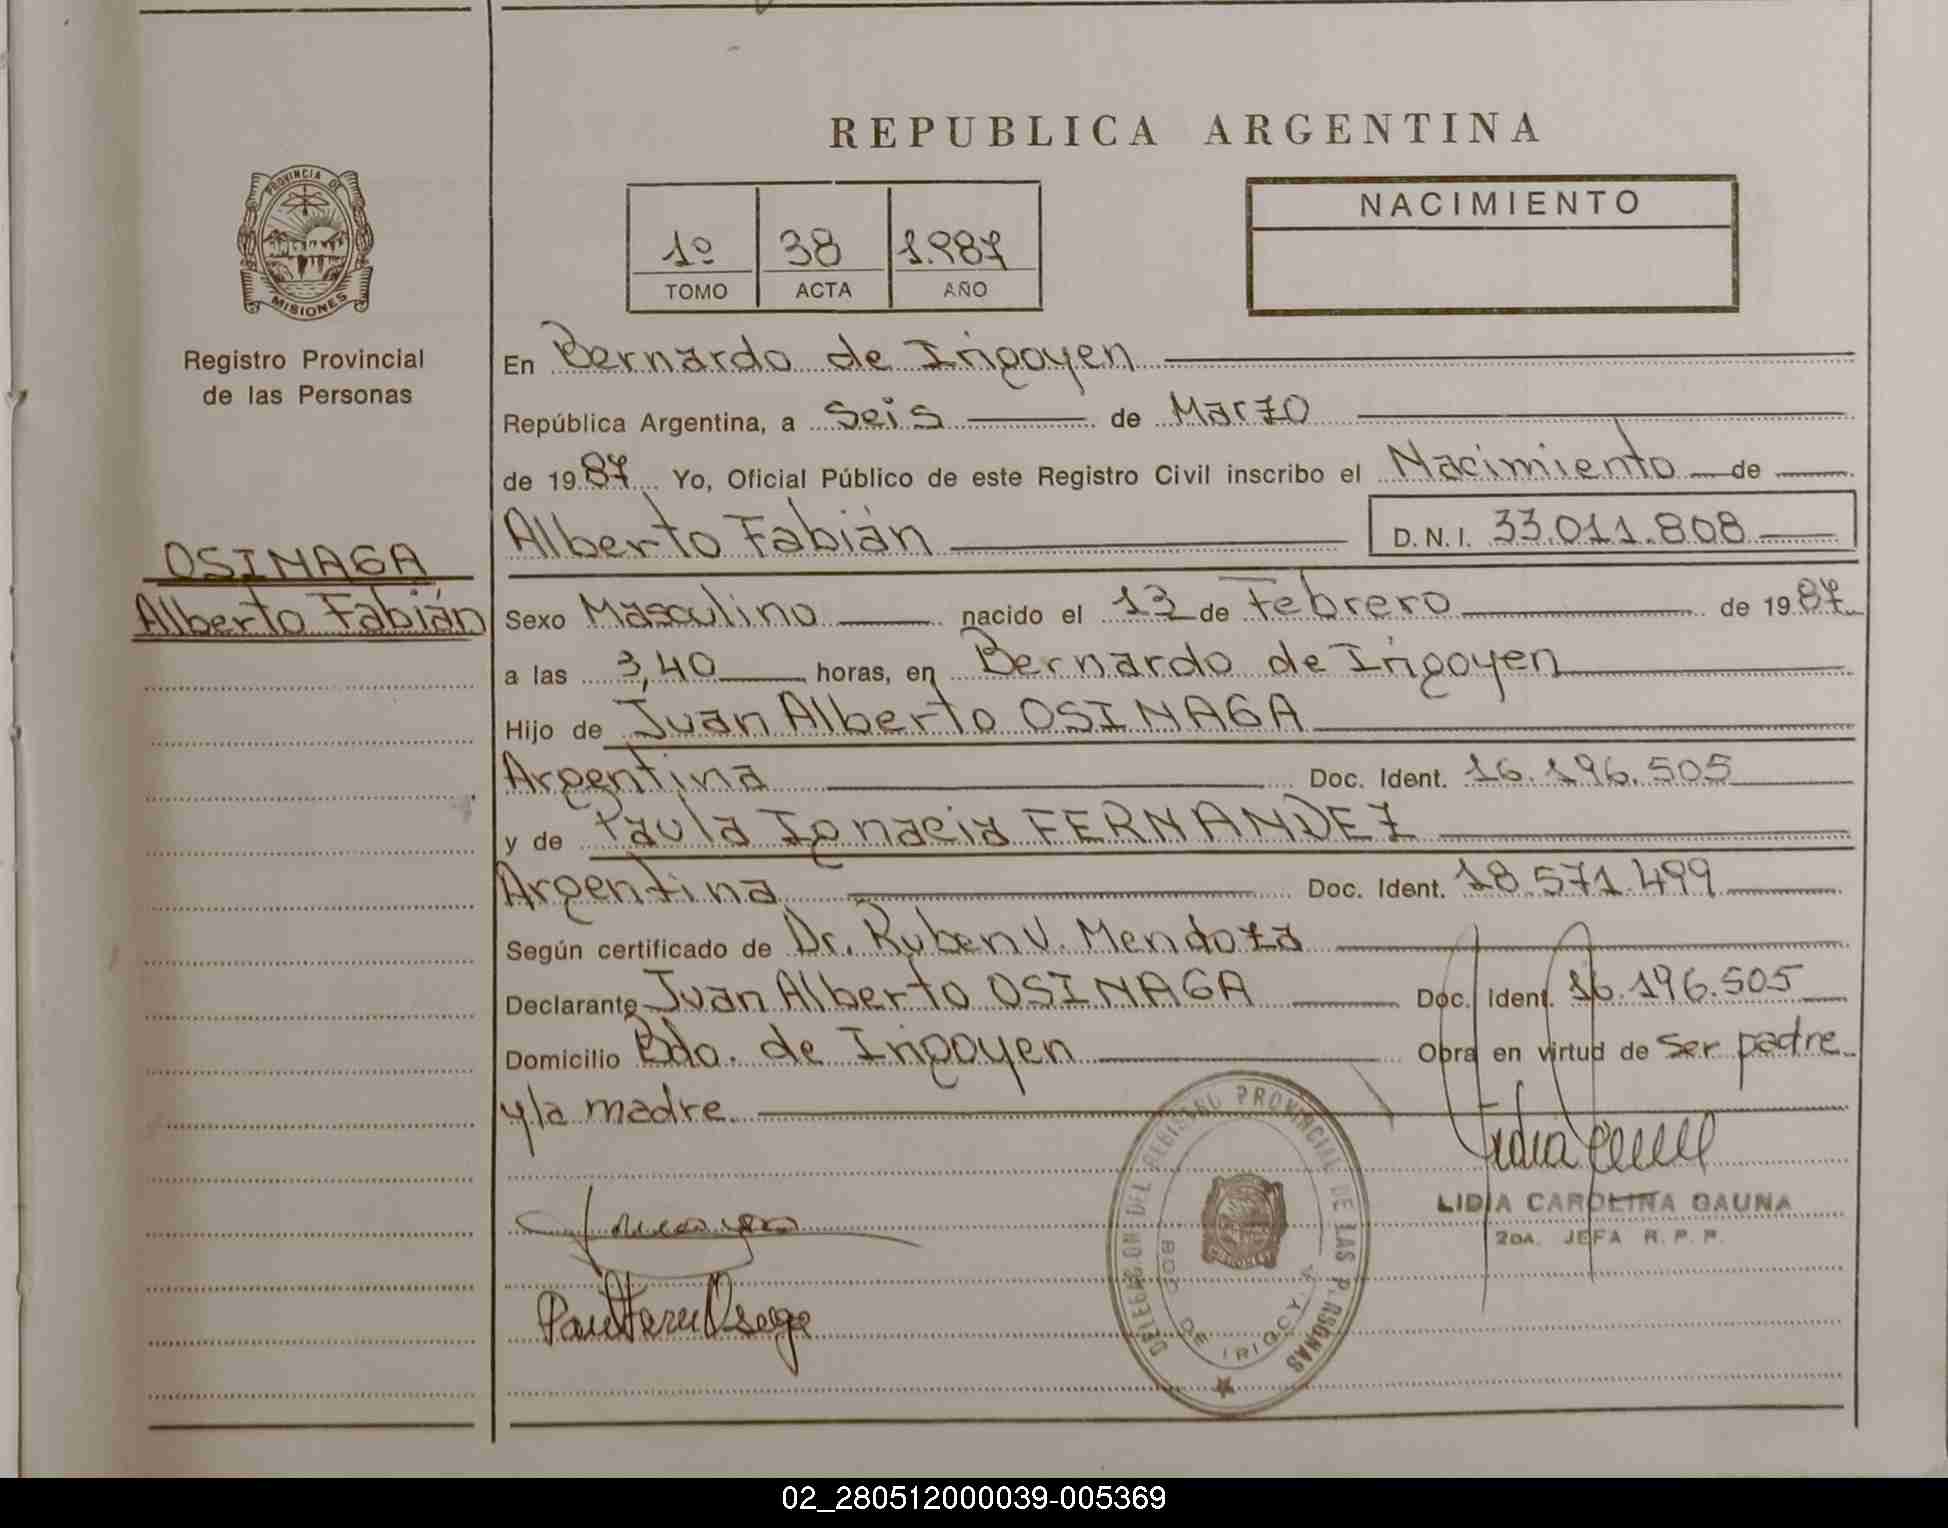 REPUBLICA ARGENTINA
PROVINCIA DE
MISIONES
Registro Provincial
de las Personas
1º 38 1.987
TOMO ACTA AÑO
NACIMIENTO
En Bernardo de Irigoyen
República Argentina, a Seis de Marzo
de 1987 Yo, Oficial Público de este Registro Civil inscribo el Nacimiento de
Alberto Fabián D.N.I. 33.011.808
OSINAGA
Alberto Fabián
Sexo Masculino nacido el 13 de Febrero de 1987
a las 3,40 horas, en Bernardo de Irigoyen
Hijo de Juan Alberto OSINAGA
Argentina Doc. Ident. 16.196.505
y de Paula Ignacia FERNANDEZ
Argentina Doc. Ident. 18.571.499
Según certificado de Dr. Ruben V. Mendoza
Declarante Juan Alberto OSINAGA Doc. Ident. 16.196.505
Domicilio Bdo. de Irigoyen Obra en virtud de ser padre
y la madre.
DELEGACION DEL REGISTRO PROVINCIAL DE LAS PERSONAS
BDO. DE IRIGOYEN
LIDIA CAROLINA GAUNA
2DA. JEFA R.P.P.
02_280512000039-005369